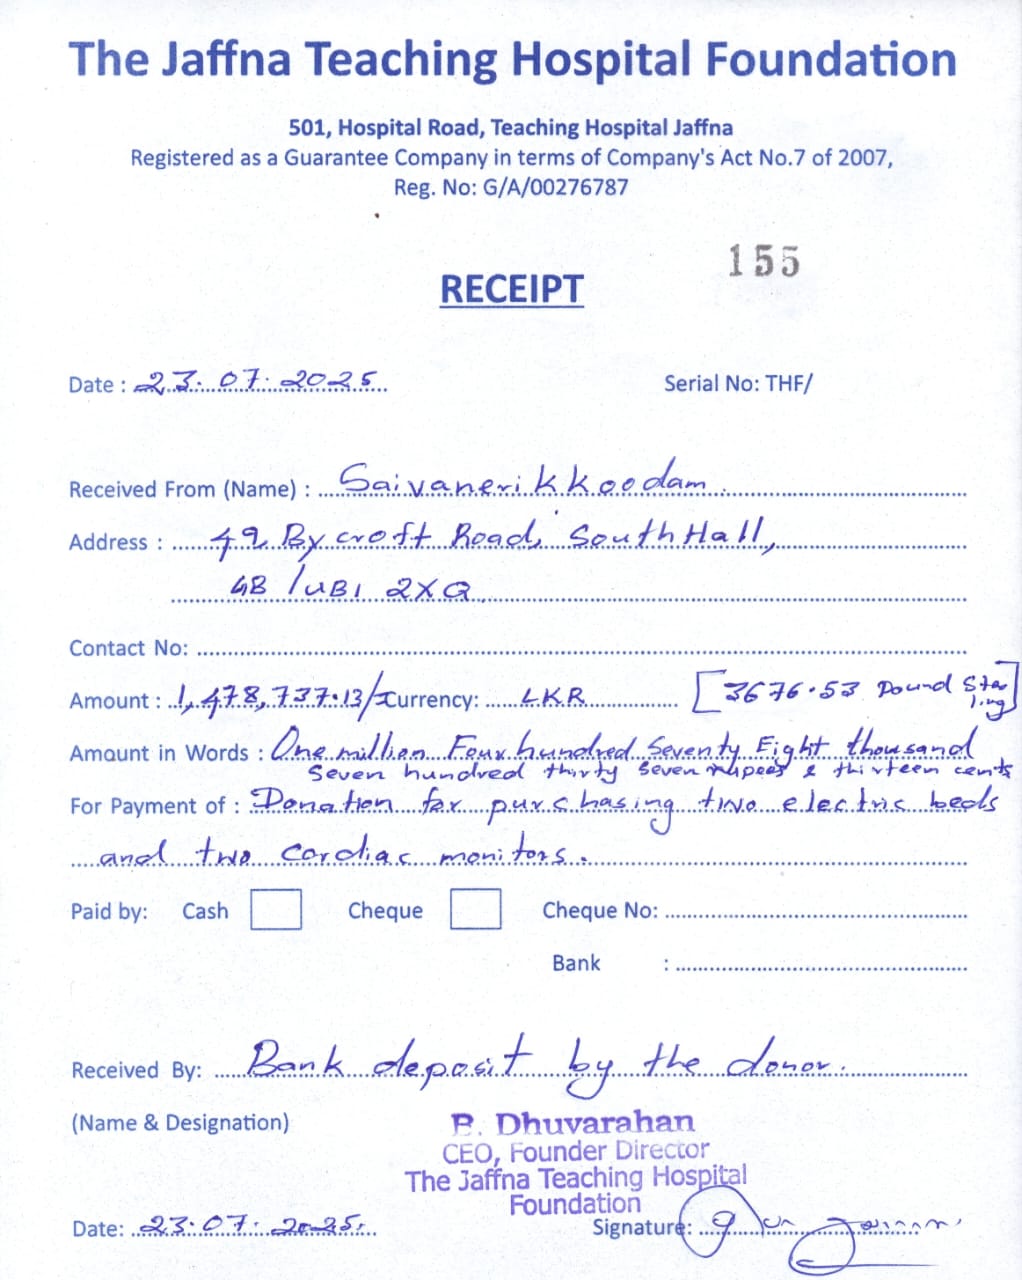 The Jaffna Teaching Hospital Foundation
501, Hospital Road, Teaching Hospital Jaffna
Registered as a Guarantee Company in terms of Company's Act No.7 of 2007,
Reg. No: G/A/00276787
155
RECEIPT
Date : 23.07.2025
Serial No: THF/
Received From (Name) : Saivanerikkoodam
Address : 49 Bycroft Road, SouthHall,
GB /UB1 2XQ
Contact No:
Amount : 1,478,737.13/= Currency: LKR [3676.53 Pound Sterling]
Amount in Words : One million Four hundred Seventy Eight thousand
Seven hundred thirty Seven rupees & thirteen cents
For Payment of : Donation for purchasing two electric beds
and two cardiac monitors.
Paid by: Cash Cheque Cheque No:
Bank :
Received By: Bank deposit by the donor.
(Name & Designation)
B. Dhuvarahan
CEO, Founder Director
The Jaffna Teaching Hospital
Foundation
Date: 23.07.2025. Signature: